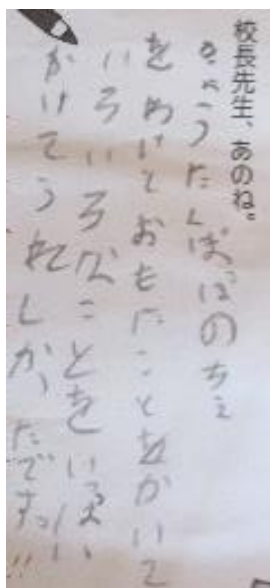 校長先生、あのね。
きょうたんぽぽのちえ
をわけとおもたことをかいて
いろいろなことをいっぱい
かけてうれしかったです。!!